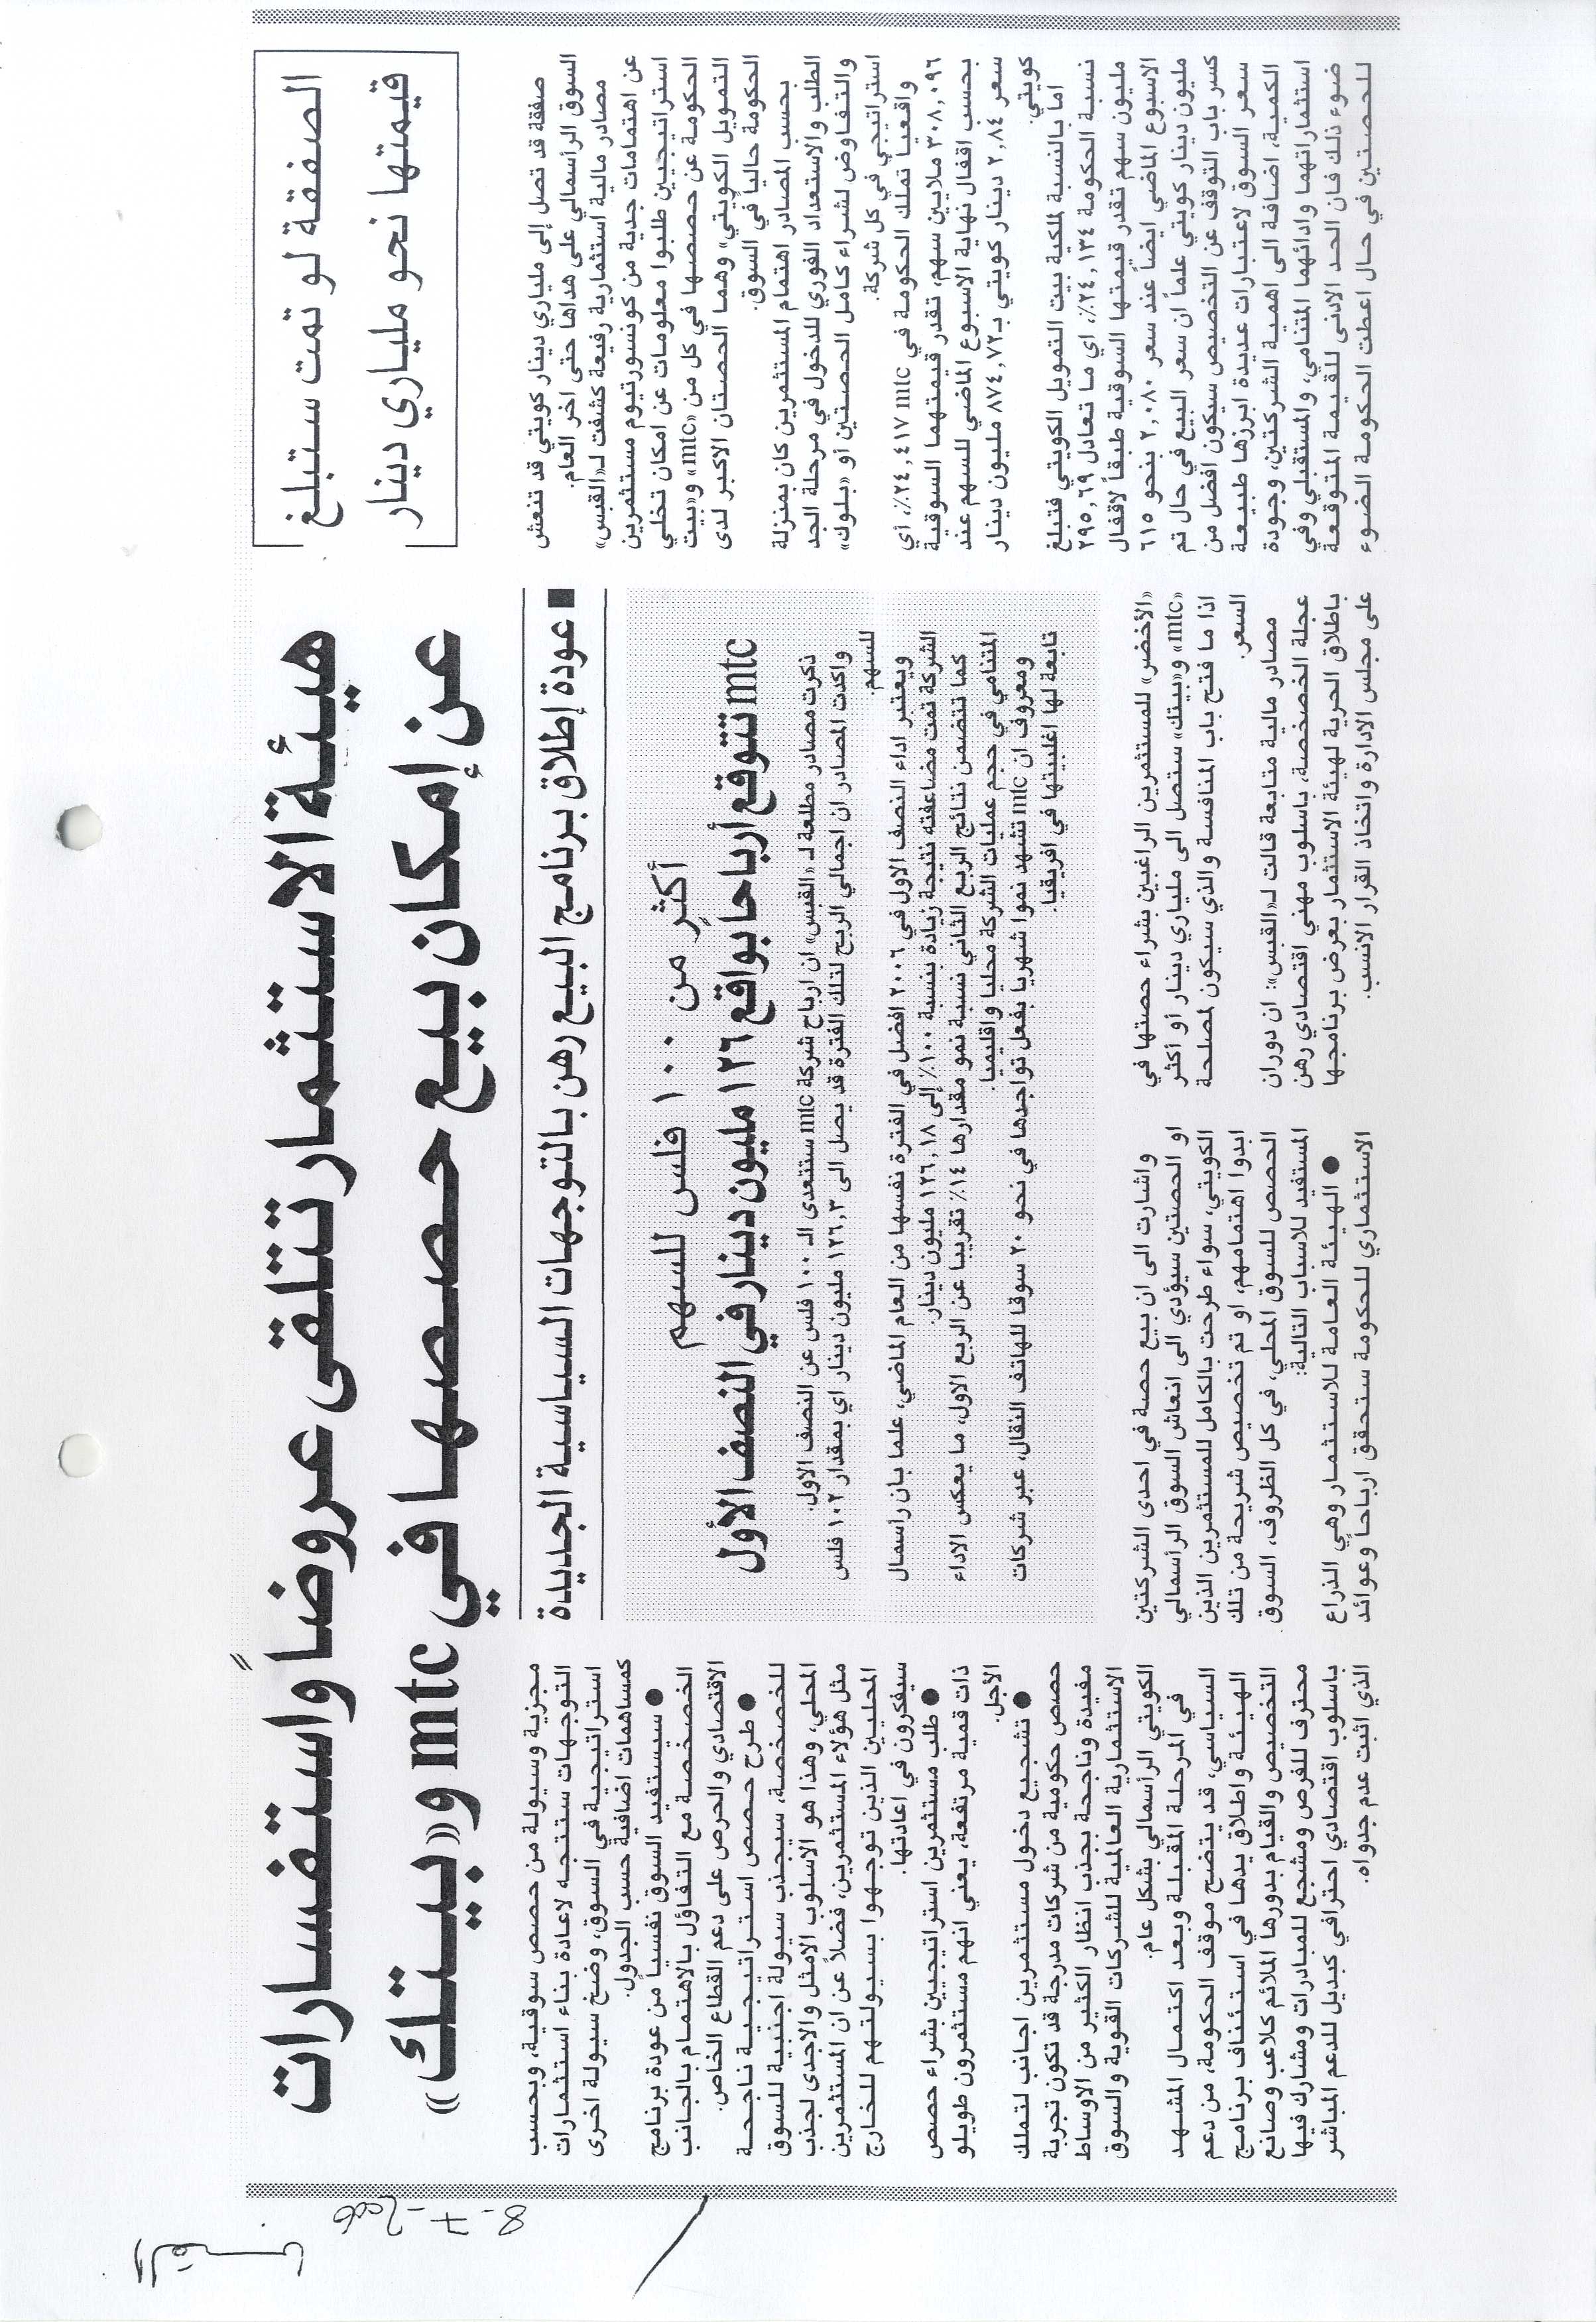 هيئة الاستثمار تتلقى عروضا واستفسارات
عن إمكان بيع حصصها في mtc و«بيتك»
الصفقة لو تمت ستبلغ
قيمتها نحو ملياري دينار
■ عودة إطلاق برنامج البيع رهن بالتوجهات السياسية الجديدة
صفقة قد تصل إلى ملياري دينار كويتي قد تنعش
السوق الرأسمالي على مداها حتى اخر العام.
مصادر مالية استثمارية رفيعة كشفت لـ«القبس»
عن اهتمامات جدية من كونسورتيوم مستثمرين
استراتيجيين طلبوا معلومات عن امكان تخلي
الحكومة عن حصصها في كل من «mtc» و«بيت
التمويل الكويتي» وهما الحصتان الاكبر لدى
الحكومة حالياً في السوق.
بحسب المصادر اهتمام المستثمرين كان بمنزلة
الطلب والاستعداد الفوري للدخول في مرحلة الجد
والتفاوض لشراء كامل الحصتين أو «بلوك»
استراتيجي في كل شركة.
واقعياً تملك الحكومة في mtc ٢٤,٤١٧٪، أي
٣٠٨,٠٩٦ ملايين سهم، تقدر قيمتهما السوقية
بحسب اقفال نهاية الاسبوع الماضي للسهم عند
سعر ٢,٨٤ دينار كويتي بـ٨٧٤,٧٢ مليون دينار
كويتي.
اما بالنسبة لملكية بيت التمويل الكويتي فتبلغ
نسبة الحكومة ٢٤,١٣٤٪، اي ما تعادل ٢٩٥,٦٩
مليون سهم تقدر قيمتها السوقية طبقاً لاقفال
الاسبوع الماضي ايضاً عند سعر ٢,٠٨٠ بنحو ٦١٥
مليون دينار كويتي علماً ان سعر البيع في حال تم
كسر باب التوقف عن التخصيص سيكون افضل من
سعر السوق لاعتبارات عديدة ابرزها طبيعة
الكمية، اضافة الى اهمية الشركتين، وجودة
استثماراتهما وادائهما المتنامي، والمستقبلي وفي
ضوء ذلك فان الحد الادنى للقيمة المتوقعة
للحصتين في حال اعطت الحكومة الضوء
أكثر من ١٠٠ فلس للسهم
mtc تتوقع أرباحا بواقع ١٢٦ مليون دينار في النصف الأول
ذكرت مصادر مطلعة لـ «القبس» ان ارباح شركة mtc ستتعدى الـ ١٠٠ فلس عن النصف الاول.
واكدت المصادر ان اجمالي الربح لتلك الفترة قد يصل الى ١٢٦,٣ مليون دينار اي بمقدار ١٠٢ فلس
للسهم.
ويعتبر اداء النصف الاول في ٢٠٠٦ افضل في الفترة نفسها من العام الماضي، علما بان رأسمال
الشركة تمت مضاعفته نتيجة زيادة بنسبة ١٠٠٪ إلى ١٢٦,١٨ مليون دينار.
كما تتضمن نتائج الربع الثاني نسبة نمو مقدارها ١٤٪ تقريبا عن الربع الاول، ما يعكس الاداء
المتنامي في حجم عمليات الشركة محليا واقليميا.
ومعروف ان mtc تشهد نموا شهريا بفعل تواجدها في نحو ٢٠ سوقا للهاتف النقال، عبر شركات
تابعة لها اغلبيتها في افريقيا.
«الأخضر» للمستثمرين الراغبين بشراء حصتها في
«mtc» و«بيتك» ستصل الى ملياري دينار أو أكثر
اذا ما فتح باب المنافسة والذي سيكون لمصلحة
السعر.
مصادر مالية متابعة قالت لـ«القبس»: ان دوران
عجلة الخصخصة، باسلوب مهني اقتصادي رهن
باطلاق الحرية لهيئة الاستثمار بعرض برنامجها
على مجلس الادارة واتخاذ القرار الانسب.
واشارت الى ان بيع حصة في احدى الشركتين
او الحصتين سيؤدي الى انعاش السوق الرأسمالي
الكويتي، سواء طرحت بالكامل للمستثمرين الذين
ابدوا اهتمامهم، او تم تخصيص شريحة من تلك
الحصص للسوق المحلي، في كل الظروف، السوق
المستفيد للاسباب التالية:
● الهيئة العامة للاستثمار وهي الذراع
الاستثماري للحكومة ستحقق ارباحاً وعوائد
مجزية وسيولة من حصص سوقية، وبحسب
التوجهات ستتجه لاعادة بناء استثمارات
استراتيجية في السوق، وضخ سيولة اخرى
كمساهمات اضافية حسب الجدول.
● سيستفيد السوق نفسياً من عودة برنامج
الخصخصة مع التفاؤل بالاهتمام بالجانب
الاقتصادي والحرص على دعم القطاع الخاص.
● طرح حصص استراتيجية ناجحة
للخصخصة، سيجذب سيولة اجنبية للسوق
المحلي، وهذا هو الاسلوب الامثل والاجدى لجذب
مثل هؤلاء المستثمرين، فضلاً عن ان المستثمرين
المحليين الذين توجهوا بسيولتهم للخارج
سيفكرون في اعادتها.
● طلب مستثمرين استراتيجيين بشراء حصص
ذات قمية مرتفعة، يعني انهم مستثمرون طويلو
الأجل.
● تشجيع دخول مستثمرين اجانب لتملك
حصص حكومية من شركات مدرجة قد تكون تجربة
مفيدة وناجحة بجذب انظار الكثير من الاوساط
الاستثمارية العالمية للشركات القوية والسوق
الكويتي الرأسمالي بشكل عام.
في المرحلة المقبلة وبعد اكتمال المشهد
السياسي، قد يتضح موقف الحكومة، من دعم
الهيئة واطلاق يدها في استئناف برنامج
التخصيص والقيام بدورها الملائم كلاعب وصانع
محترف للفرص ومشجع للمبادرات ومشارك فيها
باسلوب اقتصادي احترافي كبديل للدعم المباشر
الذي اثبت عدم جدواه.
القبس
8-7-2006